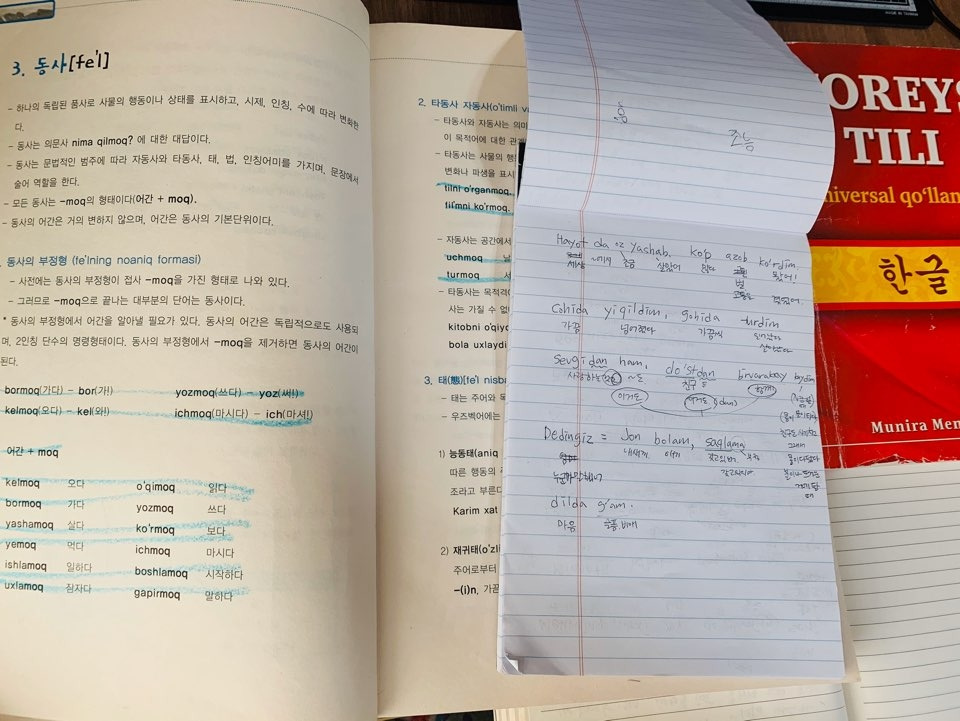 3. 동사[fe'l]
– 하나의 독립된 품사로 사물의 행동이나 상태를 표시하고, 시제, 인칭, 수에 따라 변화한
다.
– 동사는 의문사 nima qilmoq? 에 대한 대답이다.
– 동사는 문법적인 범주에 따라 자동사와 타동사, 태, 법, 인칭어미를 가지며, 문장에서
술어 역할을 한다.
– 모든 동사는 –moq의 형태이다(어간 + moq).
– 동사의 어간은 거의 변하지 않으며, 어간은 동사의 기본단위이다.
동사의 부정형 (fe'lning noaniq formasi)
– 사전에는 동사의 부정형이 접사 –moq을 가진 형태로 나와 있다.
– 그러므로 –moq으로 끝나는 대부분의 단어는 동사이다.
* 동사의 부정형에서 어간을 알아낼 필요가 있다. 동사의 어간은 독립적으로도 사용되
며, 2인칭 단수의 명령형태이다. 동사의 부정형에서 –moq을 제거하면 동사의 어간이
된다.
bormoq(가다) – bor(가!) yozmoq(쓰다) – yoz(써!)
kelmoq(오다) – kel(와!) ichmoq(마시다) – ich(마셔!)
어간 + moq
kelmoq 오다 o'qimoq 읽다
bormoq 가다 yozmoq 쓰다
yashamoq 살다 ko'rmoq 보다
yemoq 먹다 ichmoq 마시다
ishlamoq 일하다 boshlamoq 시작하다
uxlamoq 잠자다 gapirmoq 말하다
2. 타동사 자동사(o'timli va
– 타동사와 자동사는 의미
이 목적어에 대한 관계
– 타동사는 사물의 행동
변화나 파생을 표시
tilni o'rganmoq.
filmni ko'rmoq.
– 자동사는 공간에서
uchmoq 날
turmoq 서
– 타동사는 목적격
사는 가질 수 없
kitobni o'qiyd
bola uxlaydi
3. 태(態)[fe'l nisba
– 태는 주어와 목
– 우즈벡어에는
1) 능동태(aniq
따른 행동의
라고 부른다
Karim xat
2) 재귀태(o'zli
주어로부터
–(i)n, 가끔
Hayot da oz yashab, ko'p azob ko'rdim.
세상 ~에서 조금 살았어
Gohida yiqildim, gohida turdim
가끔 넘어졌다 가끔씩 일어났다
Sevgidan ham, do'stdan
친구
Dedingiz = Jon bolam,
dilda g'am.
마음
OREYS
TILI
niversal qo'llan
한글
Munira Men
MADE IN TAIWAN